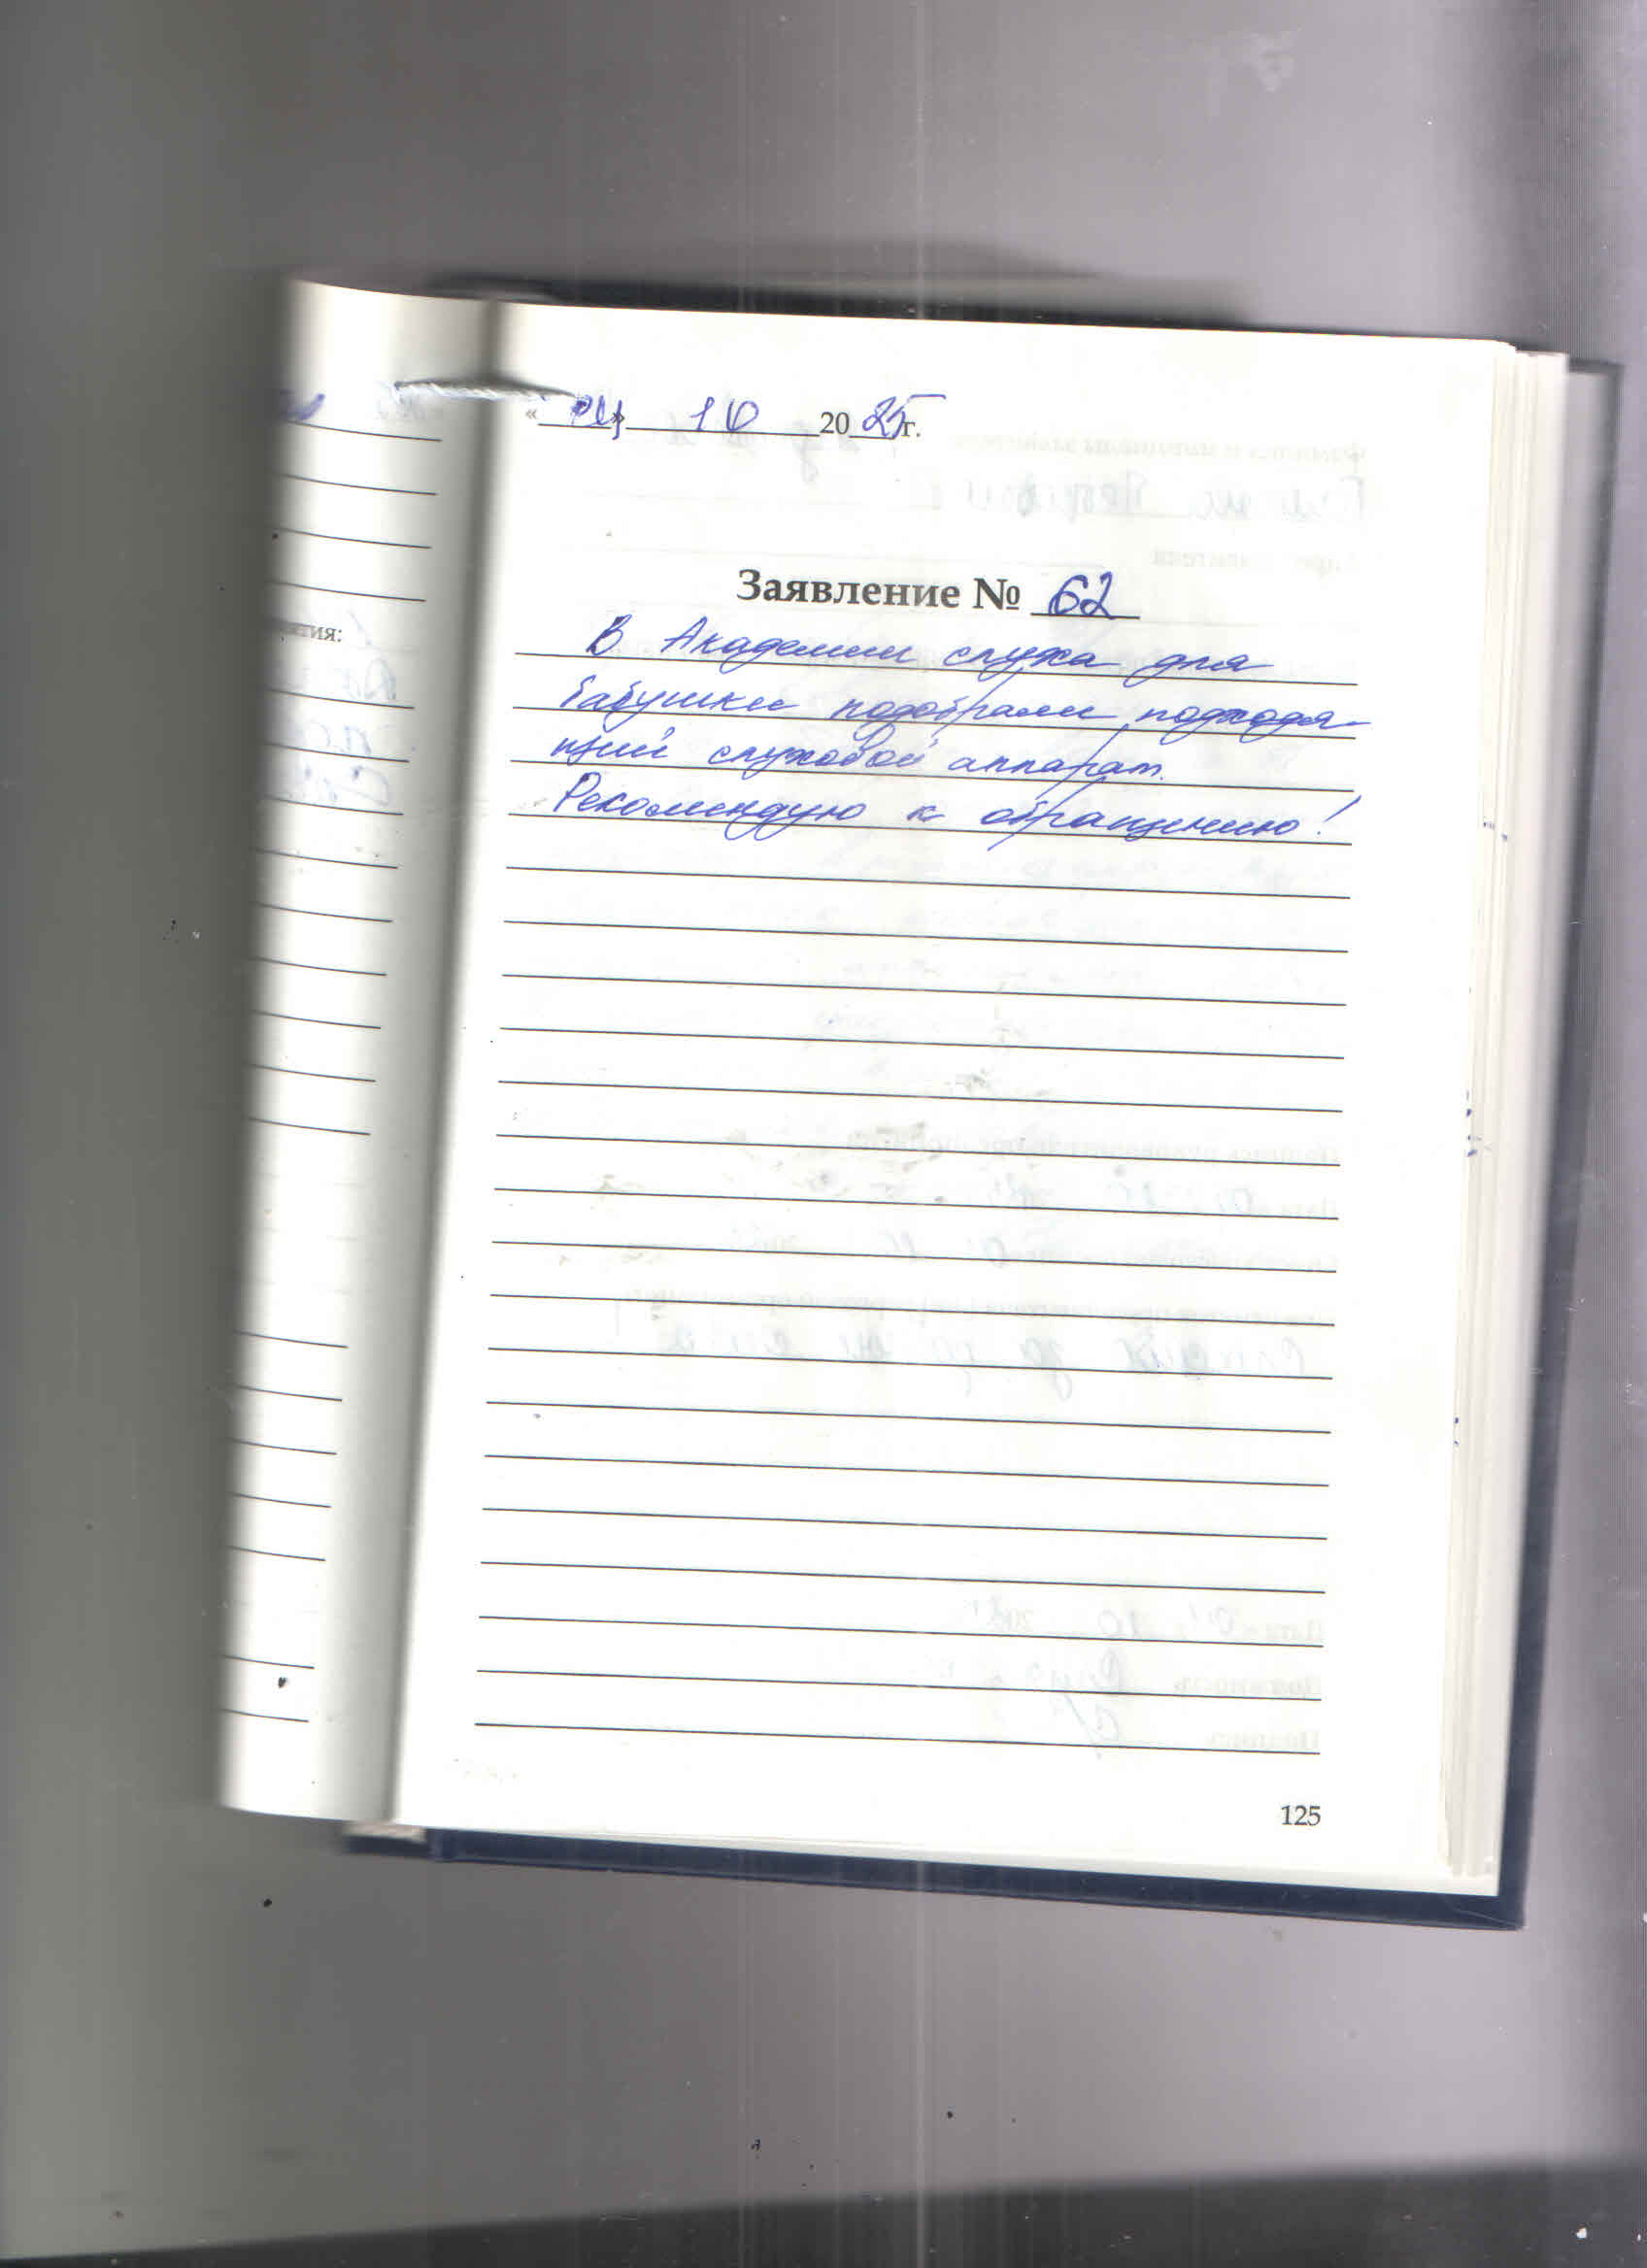 « 01 » 10 2025 г.
Заявление № 62
В Академии слуха для
бабушки подобрали подходя-
щий слуховой аппарат.
Рекомендую к обращению!
125